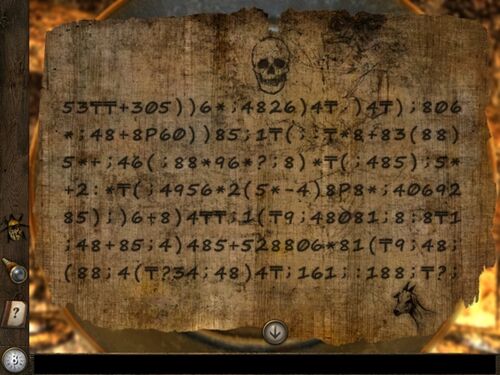 53₸₸+305))6*;4826)4₸.)4₸);806
*;48+8P60))85;1₸(;:₸*8+83(88)
5*+;46(;88*96*?;8)*₸(;485);5*
+2:*₸(;4956*2(5*-4)8P8*;40692
85);)6+8)4₸₸;1(₸9;48081;8:8₸1
;48+85;4)485+528806*81(₸9;48;
(88;4(₸?34;48)4₸;161;:188;₸?;
?